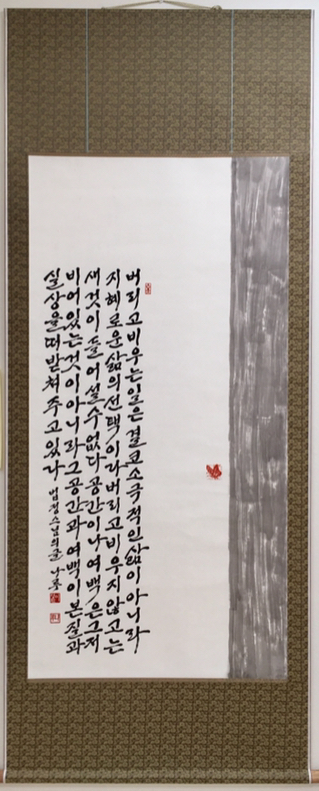 버리고비우는일은결코소극적인삶이아니라
지혜로운삶의선택이라버리고비우지않고는
새것이들어설수없다공간이나여백은그저
비어있는것이아니라그공간과여백이본질과
실상을떠받쳐주고있다 법정스님의글